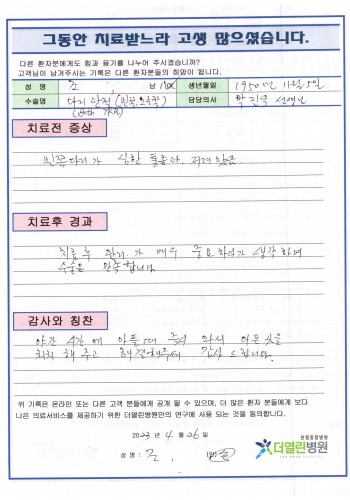 그동안 치료받느라 고생 많으셨습니다.
다른 환자분에게도 힘과 용기를 나누어 주시겠습니까?
고객님이 남겨주시는 기록은 다른 환자분들의 희망이 됩니다.
성 명 조 생년월일 1950년 11월 5일
수술명 다리 관절 (왼쪽, 오른쪽) 담당의사 박진욱 선생님
치료전 증상
왼쪽다리가 심한 통증과
치료후 경과
치료 후 관리가 매우 중요하단걸 생각하며
수술은 만족합니다
감사와 칭찬
야간 시간에 아플때 즉시 와서 아픈곳을
치치 해주고 해결해주셔 감사 드립니다.
위 기록은 온라인 또는 다른 고객 분들에게 공개 될 수 있으며, 더 많은 환자 분들에게 보다
나은 의료서비스를 제공하기 위한 더열린병원만의 연구에 사용 되는 것을 동의합니다.
2023 년 4 월 26 일
성 명 : 조
관절중점병원
더열린병원